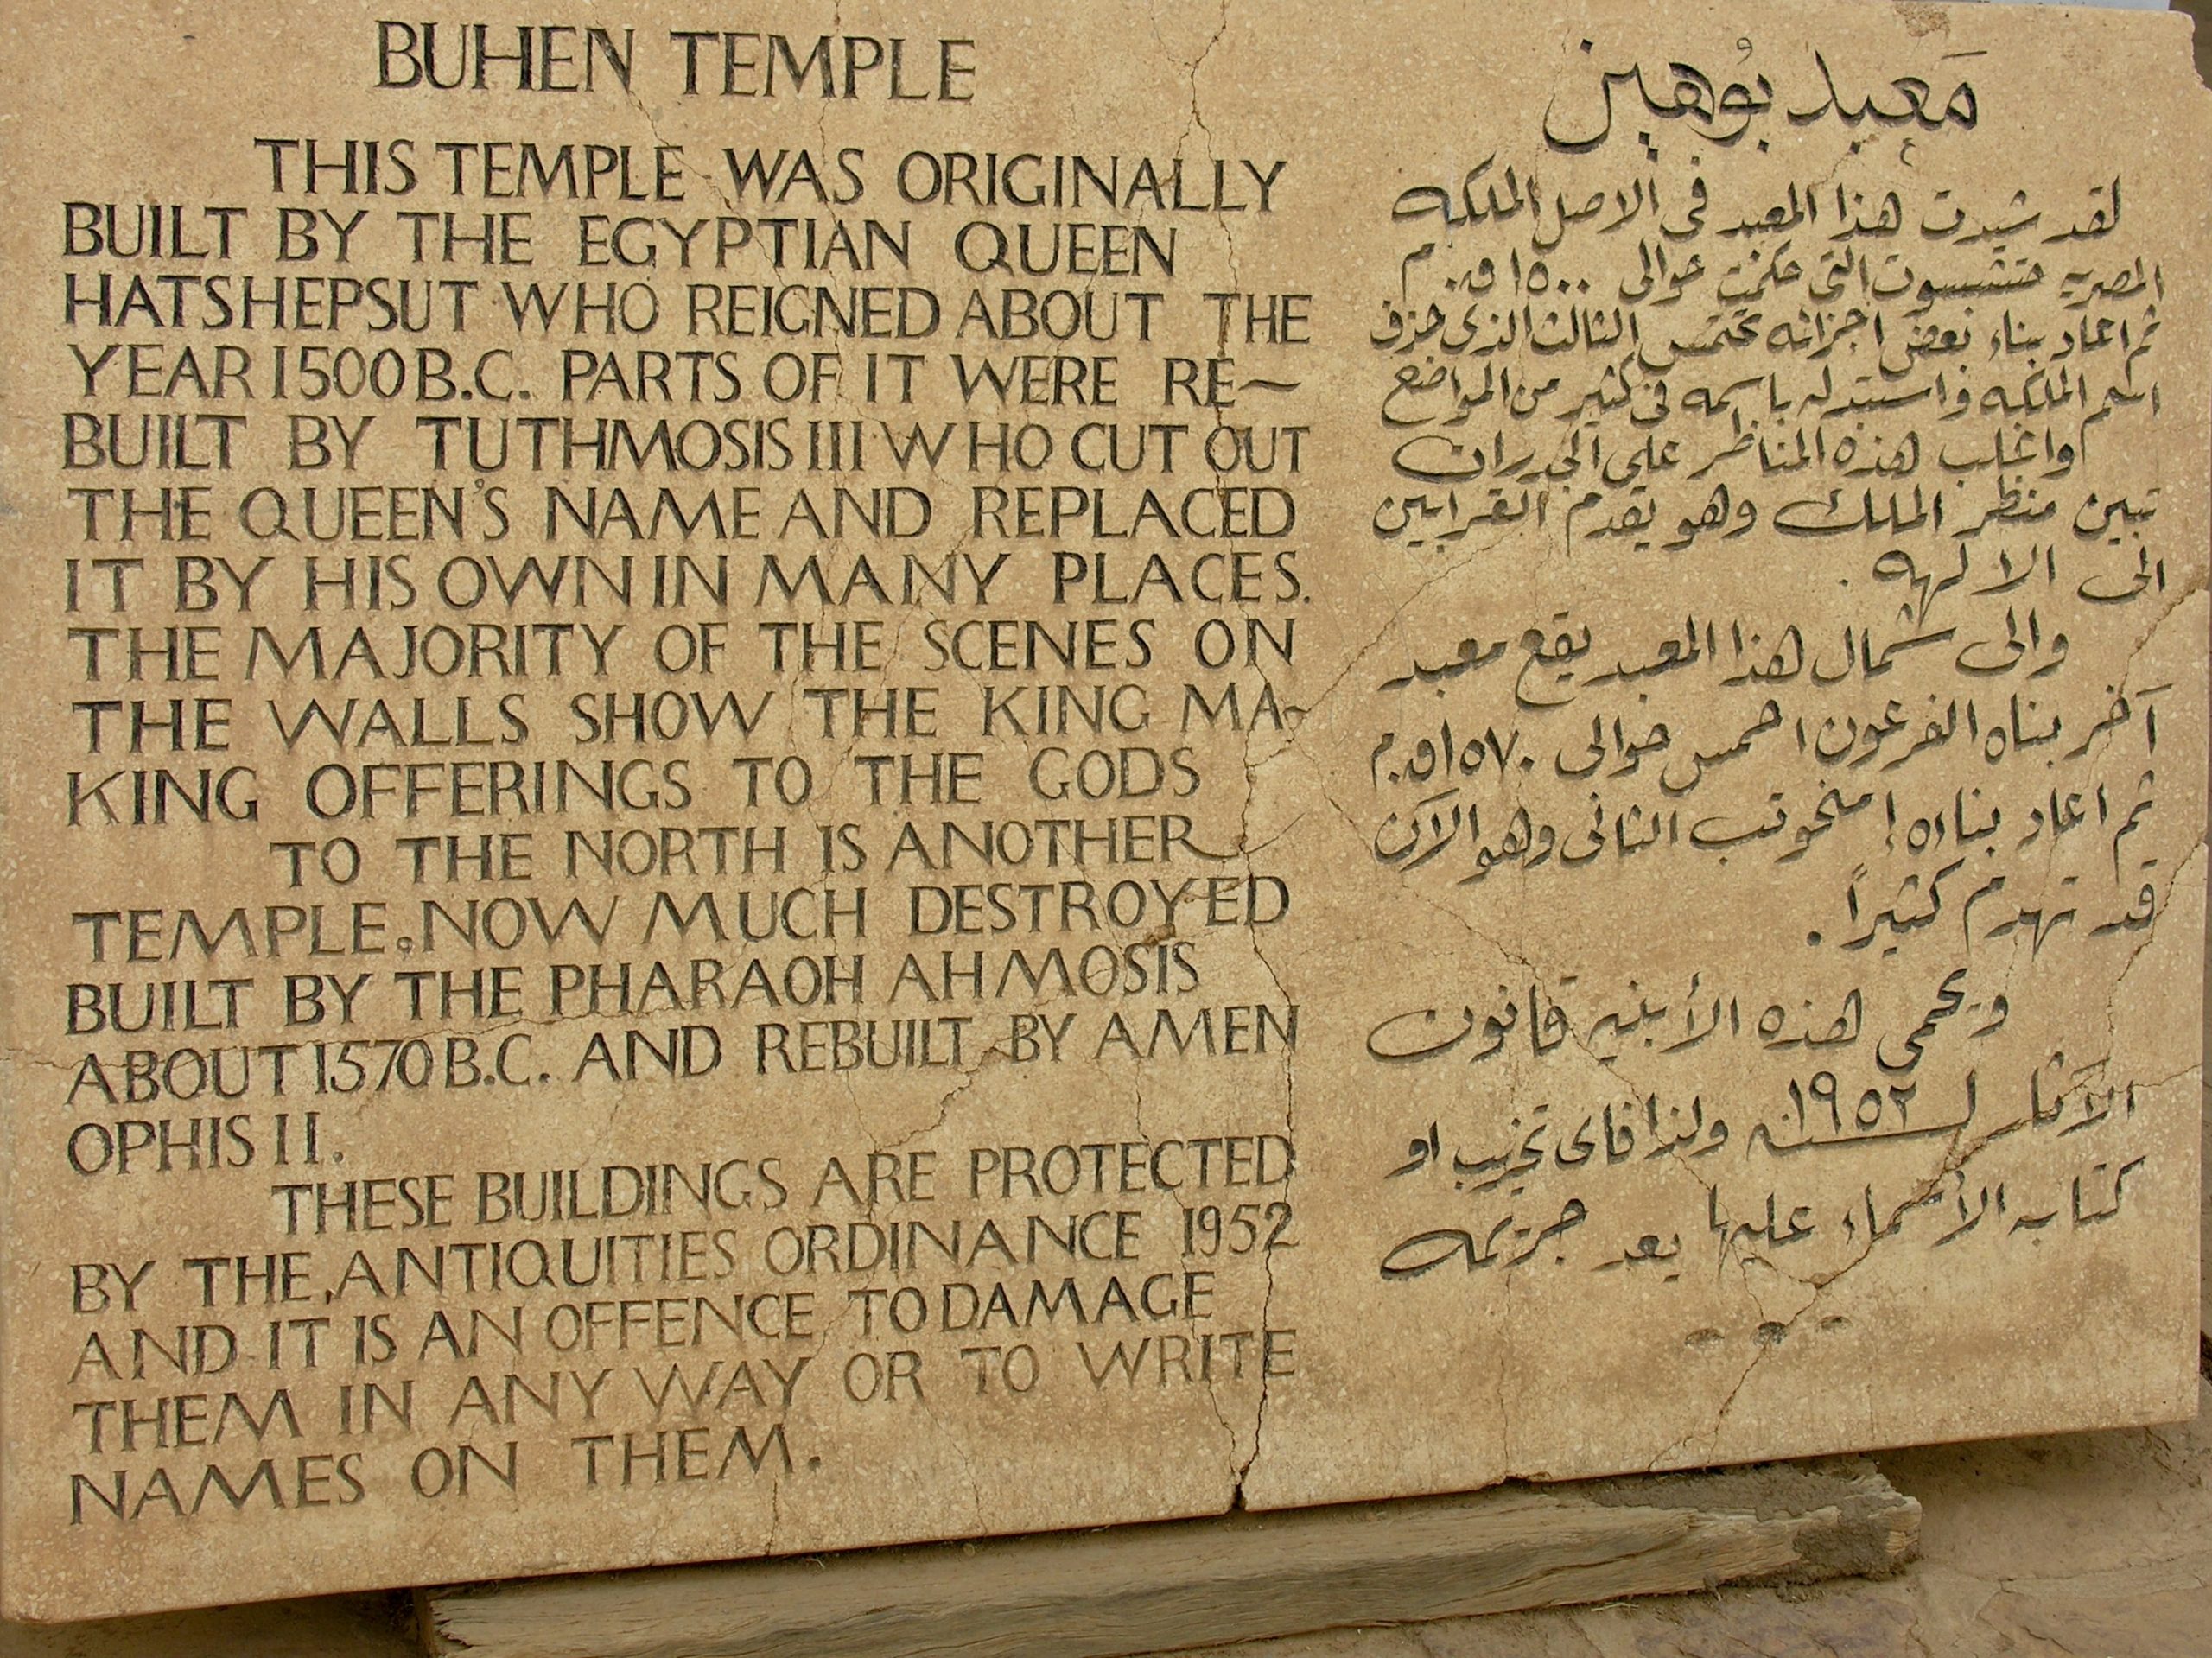 BUHEN TEMPLE
THIS TEMPLE WAS ORIGINALLY
BUILT BY THE EGYPTIAN QUEEN
HATSHEPSUT WHO REIGNED ABOUT THE
YEAR 1500 B.C. PARTS OF IT WERE RE~
BUILT BY TUTHMOSIS III WHO CUT OUT
THE QUEEN'S NAME AND REPLACED
IT BY HIS OWN IN MANY PLACES.
THE MAJORITY OF THE SCENES ON
THE WALLS SHOW THE KING MA~
KING OFFERINGS TO THE GODS
TO THE NORTH IS ANOTHER
TEMPLE, NOW MUCH DESTROYED
BUILT BY THE PHARAOH AHMOSIS
ABOUT 1570 B.C. AND REBUILT BY AMEN
OPHIS II.
THESE BUILDINGS ARE PROTECTED
BY THE ANTIQUITIES ORDINANCE 1952
AND IT IS AN OFFENCE TO DAMAGE
THEM IN ANY WAY OR TO WRITE
NAMES ON THEM.
مَعبد بُوهين
لقد شيدت هذا المعبد فى الاصل الملكه
المصريه حتشبسوت التى حكمت حوالى ١٥٠٠ ق.م
ثم اعاد بناء بعض اجزائه تحتمس الثالث الذى حزف
اسم الملكه واستبدله باسمه فى كثير من المواضع
واغلب هذه المناظر على الجدران
تبين منظر الملك وهو يقدم القرابين
الى الالهه .
والى شمال هذا المعبد يقع معبد
آخر بناه الفرعون احمس حوالى ١٥٧٠ ق.م
ثم اعاد بناءه إمنحوتب الثانى وهو الآن
قد تهدم كثيراً .
ويحمى هذه الأبنيه قانون
الآثار لسنه ١٩٥٢ ولذا فاى تخريب او
كتابه الأسماء عليها يعد جريمه